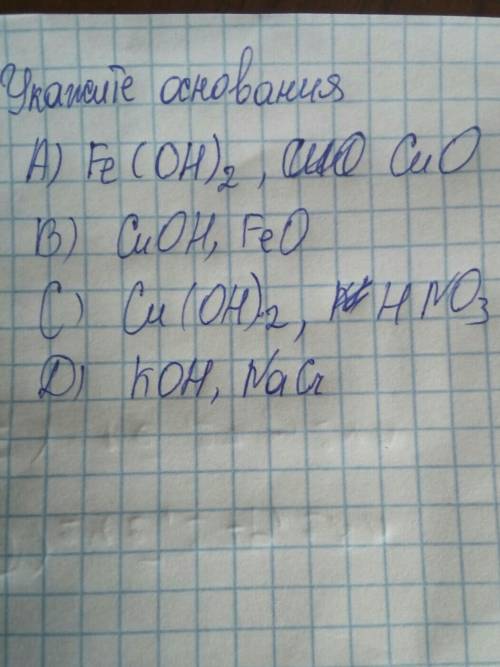 Укажите основания
A) Fe(OH)2, CuO
B) CuOH, FeO
C) Cu(OH)2, HNO3
D) KOH, NaCl